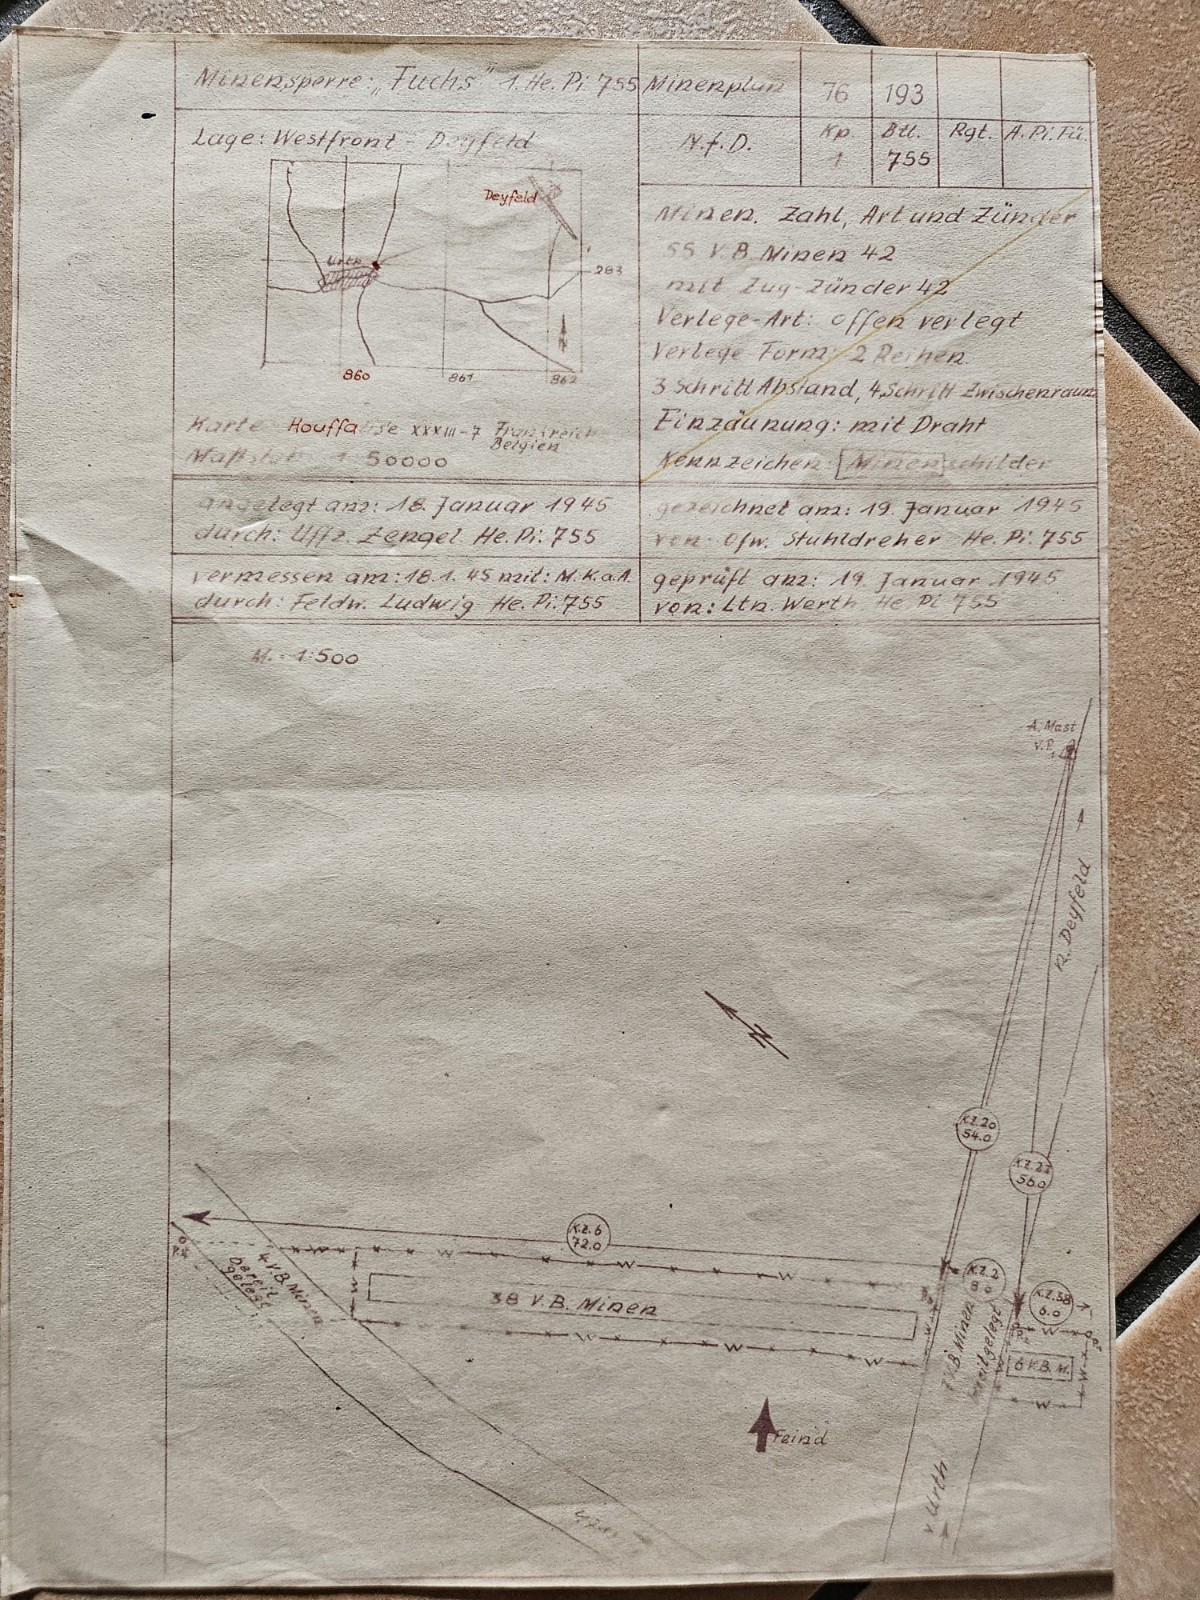 Minensperre: „Fuchs" 1. He. Pi. 755
Minenplan
76
193
N.f.D.
Kp.
Btl.
Rgt.
A. Pi. Fü.
1
755
Lage: Westfront - Deyfeld
Deyfeld
Urth
283
860
861
862
Karte Houffalise XXXIII-7 Frankreich
Belgien
Maßstab 1 50000
Minen, Zahl, Art und Zünder
55 V.B. Minen 42
mit Zug-Zünder 42
Verlege-Art: offen verlegt
Verlege Form: 2 Reihen
3 Schritt Abstand, 4 Schritt Zwischenraum
Einzäunung: mit Draht
Kennzeichen: Minenschilder
angelegt am: 18. Januar 1945
durch: Uffz. Zengel He. Pi. 755
gezeichnet am: 19. Januar 1945
von Ofw. Stuhldreher He. Pi. 755
vermessen am: 18.1.45 mit: M.K.a.A.
durch: Feldw. Ludwig He. Pi. 755
geprüft am: 19. Januar 1945
von: Ltn. Werth He Pi 755
M. - 1:500
A. Mast
V.P.
n. Deyfeld
N
K.Z. 20
54.0
K.Z. 22
56.0
K.Z. 6
72.0
K.Z. 2
8.0
K.Z. 38
6.0
4 V.B. Minen
bereit
gelegt
38 V.B. Minen
7 V.B. Minen
bereitgelegt
6 V.B. M.
W
W
W
W
W
W
W
W
Feind
v. Urth